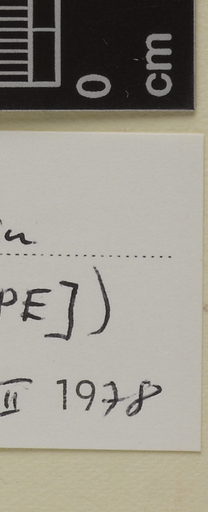 0 cm
PE])
II 1978